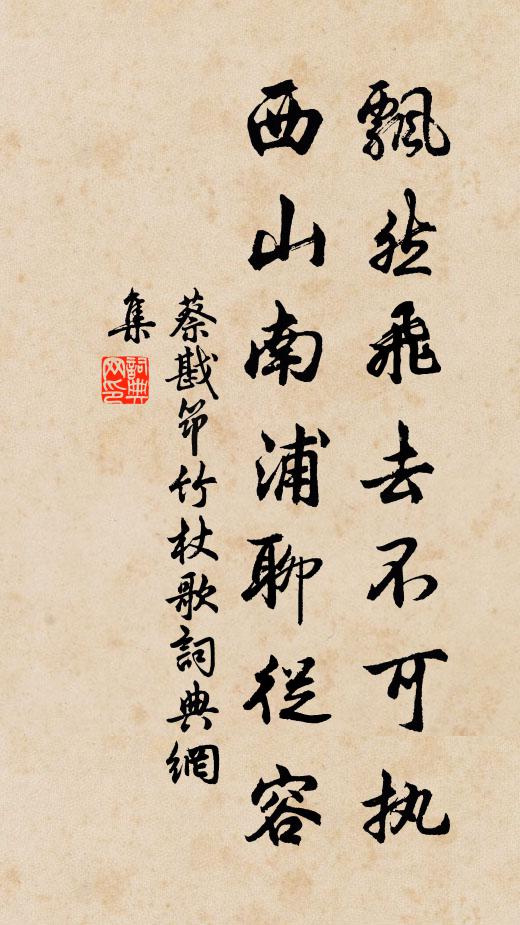 飄然飛去不可执
西山南浦聊從容
蔡戡笻竹杖歌詞典網
集
詞典
网印